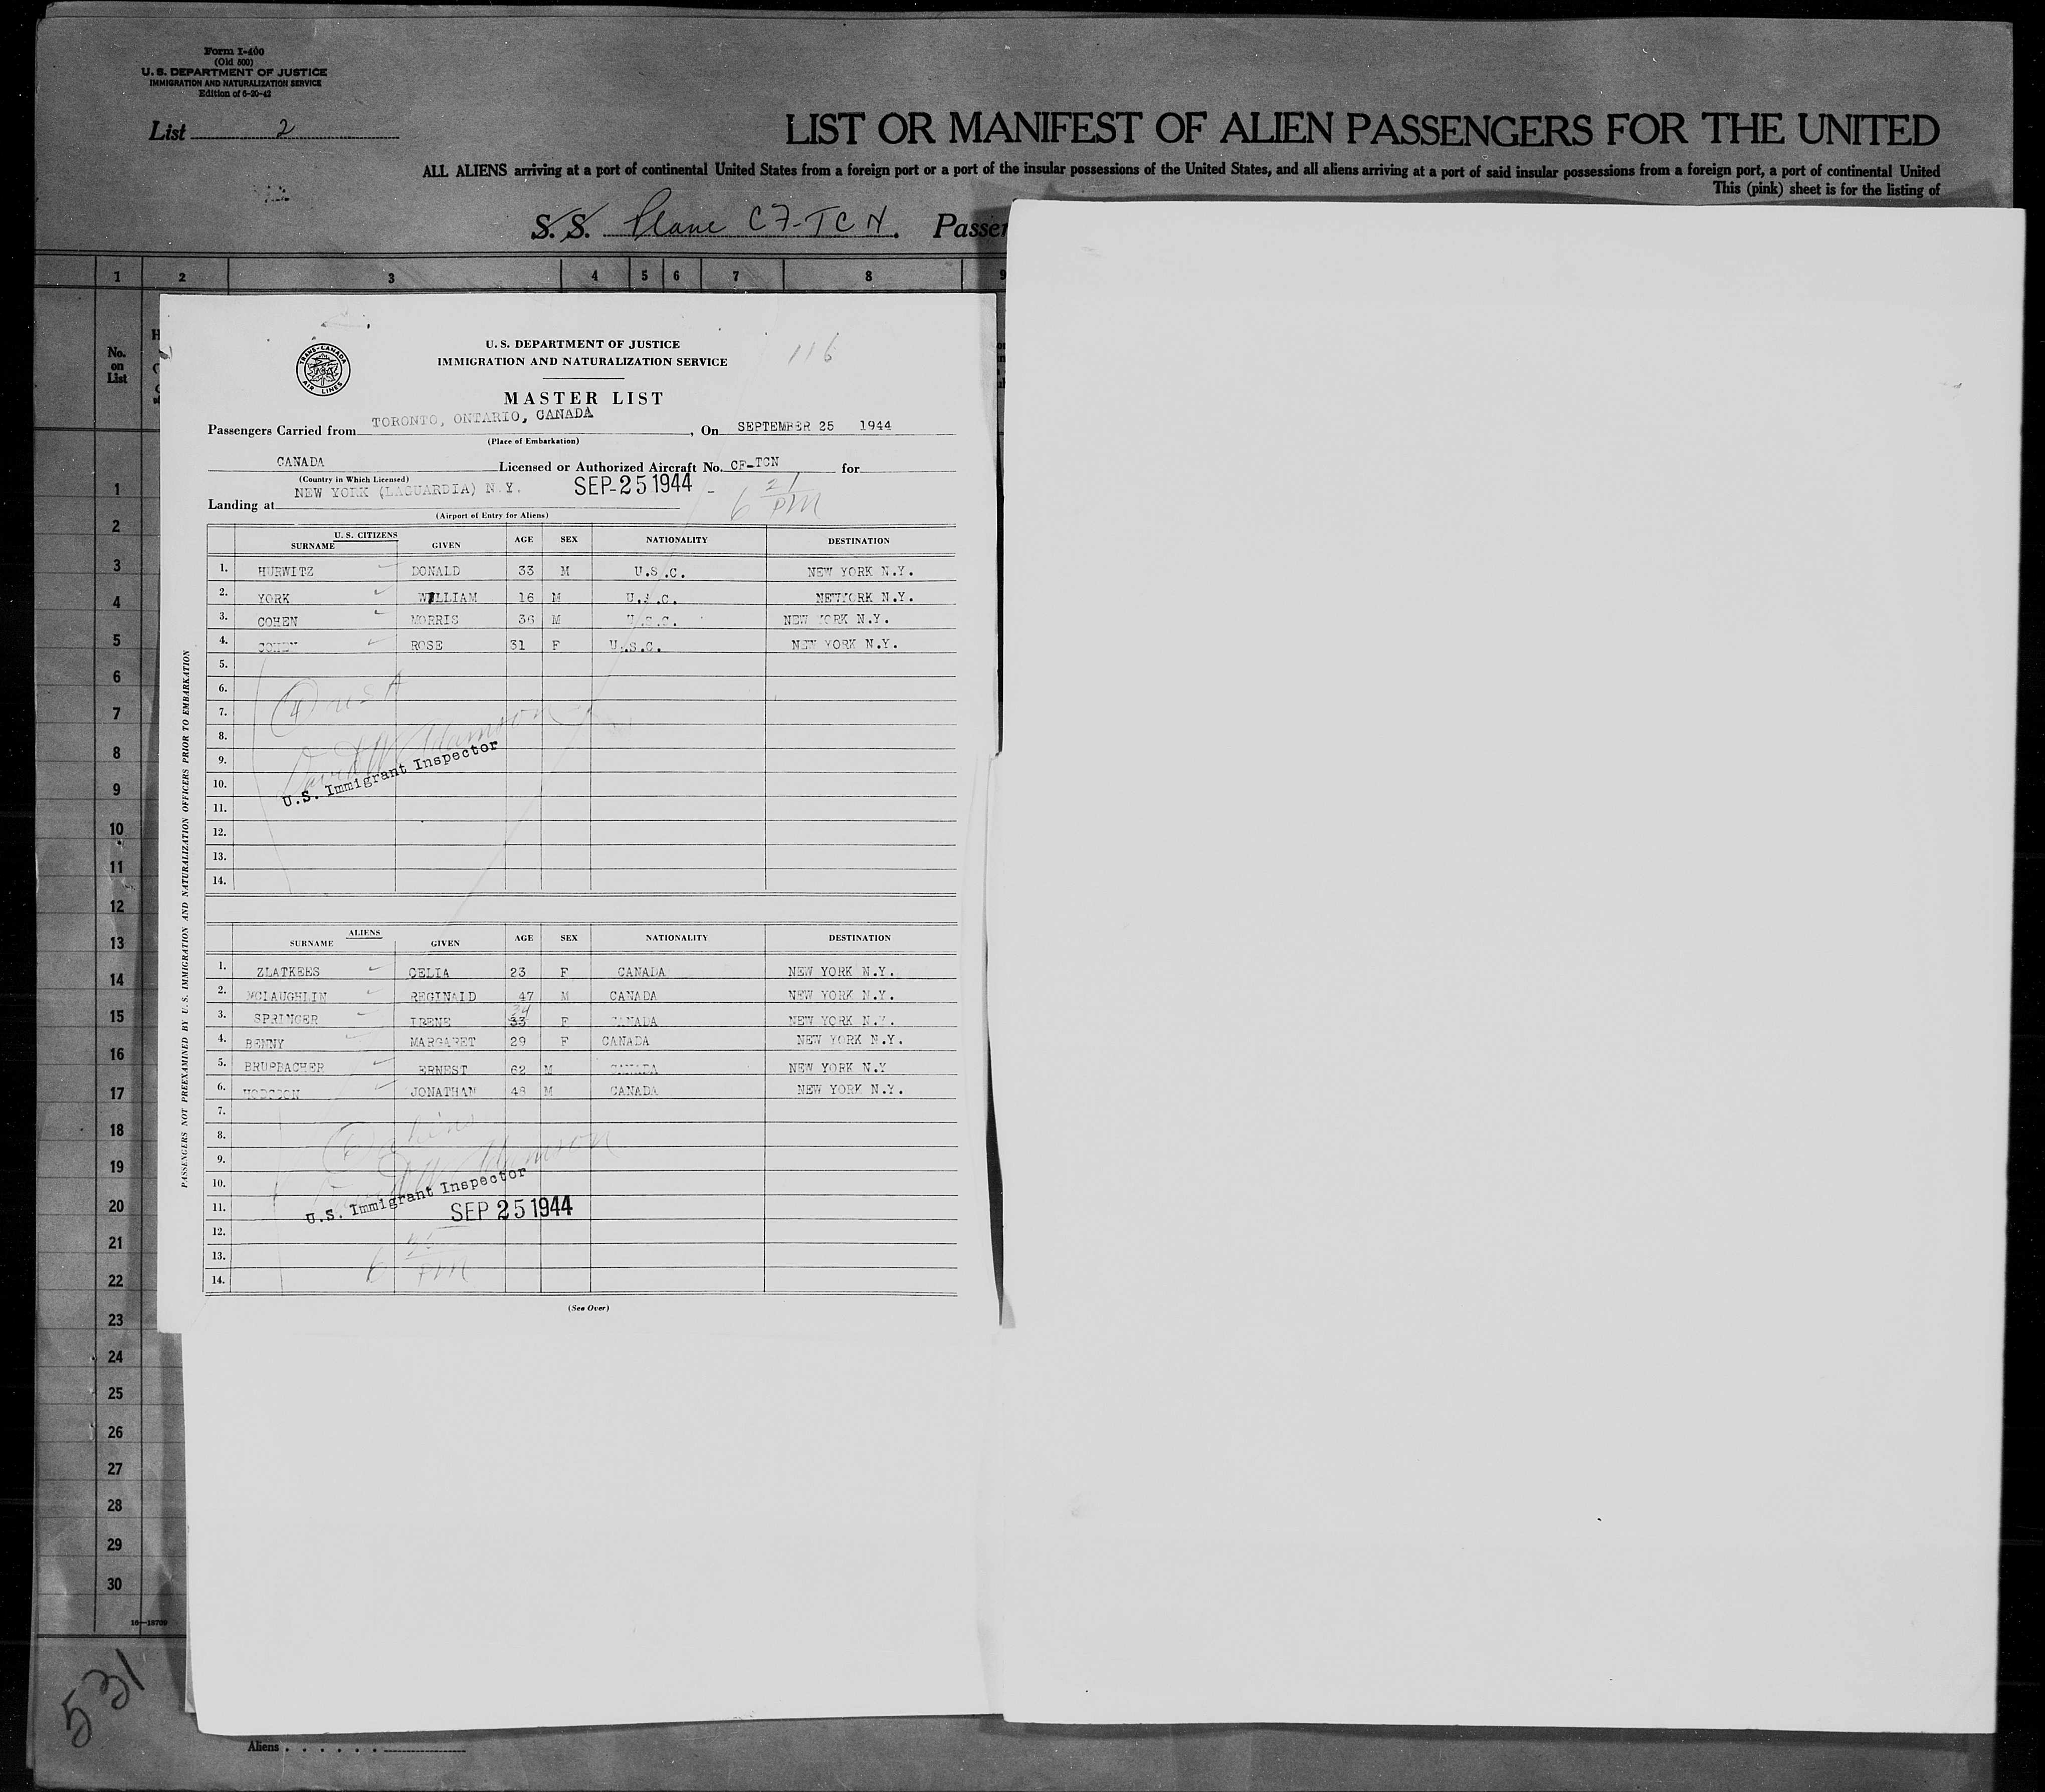 Form I-400
(Old 500)
U. S. DEPARTMENT OF JUSTICE
IMMIGRATION AND NATURALIZATION SERVICE
Edition of 6-20-42
List 2
LIST OR MANIFEST OF ALIEN PASSENGERS FOR THE UNITED
ALL ALIENS arriving at a port of continental United States from a foreign port or a port of the insular possessions of the United States, and all aliens arriving at a port of said insular possessions from a foreign port, a port of continental United
This (pink) sheet is for the listing of
S. S. Plane CF-TCN. Passen
1 2 3 4 5 6 7 8 9
No.
on
List
TRANS-CANADA AIR LINES
U. S. DEPARTMENT OF JUSTICE
IMMIGRATION AND NATURALIZATION SERVICE
116
MASTER LIST
Passengers Carried from TORONTO, ONTARIO, CANADA, On SEPTEMBER 25 1944
(Place of Embarkation)
CANADA Licensed or Authorized Aircraft No. CF-TCN for
(Country in Which Licensed)
Landing at NEW YORK (LAGUARDIA) N.Y. SEP 25 1944 - 6 21 PM
(Airport of Entry for Aliens)
U. S. CITIZENS
SURNAME GIVEN AGE SEX NATIONALITY DESTINATION
1. HURWITZ DONALD 33 M U.S.C. NEW YORK N.Y.
2. YORK WILLIAM 16 M U.S.C. NEWYORK N.Y.
3. COHEN MORRIS 36 M U.S.C. NEW YORK N.Y.
4. COHEN ROSE 31 F U.S.C. NEW YORK N.Y.
5.
6. (4) USA
7.
8.
9. David W Adamson
10. U.S. Immigrant Inspector
11.
12.
13.
14.
ALIENS
SURNAME GIVEN AGE SEX NATIONALITY DESTINATION
1. ZLATKEES CELIA 23 F CANADA NEW YORK N.Y.
2. MCLAUGHLIN REGINALD 47 M CANADA NEW YORK N.Y.
3. SPRINGER IRENE 33 34 F CANADA NEW YORK N.Y.
4. BENNY MARGARET 29 F CANADA NEW YORK N.Y.
5. BRUPBACHER ERNEST 62 M CANADA NEW YORK N.Y
6. HODGSON JONATHAN 48 M CANADA NEW YORK N.Y.
7.
8. (6) aliens
9. David W Adamson
10. U.S. Immigrant Inspector
11. SEP 25 1944
12.
13. 6 PM
14.
(See Over)
PASSENGERS NOT PREEXAMINED BY U.S. IMMIGRATION AND NATURALIZATION OFFICERS PRIOR TO EMBARKATION
1
2
3
4
5
6
7
8
9
10
11
12
13
14
15
16
17
18
19
20
21
22
23
24
25
26
27
28
29
30
16—18709
531
Aliens . . . . . .